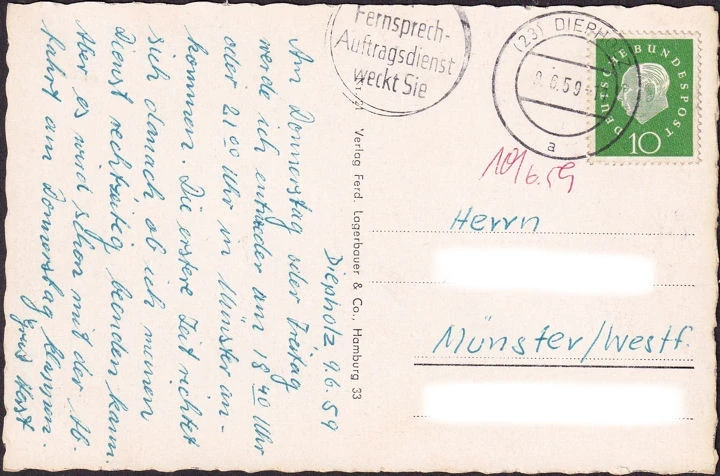 Fernsprech-
Auftragsdienst
weckt Sie
(23) DIEPHOLZ
9.6.59
a
DEUTSCHE BUNDESPOST
10
10/6.59
Diepholz 9.6.59
Am Donnerstag oder Freitag
werde ich entweder um 18 40 Uhr
oder 21 00 Uhr in Münster an-
kommen. Die erste Zeit richtet
sich danach ob ich meinen
Dienst rechtzeitig beenden kann
Aber es wird schon mit der Ab-
fahrt am Donnerstag klappen.
Gruß Horst
Verlag Ferd. Lagerbauer & Co., Hamburg 33
Herrn
Münster/Westf.